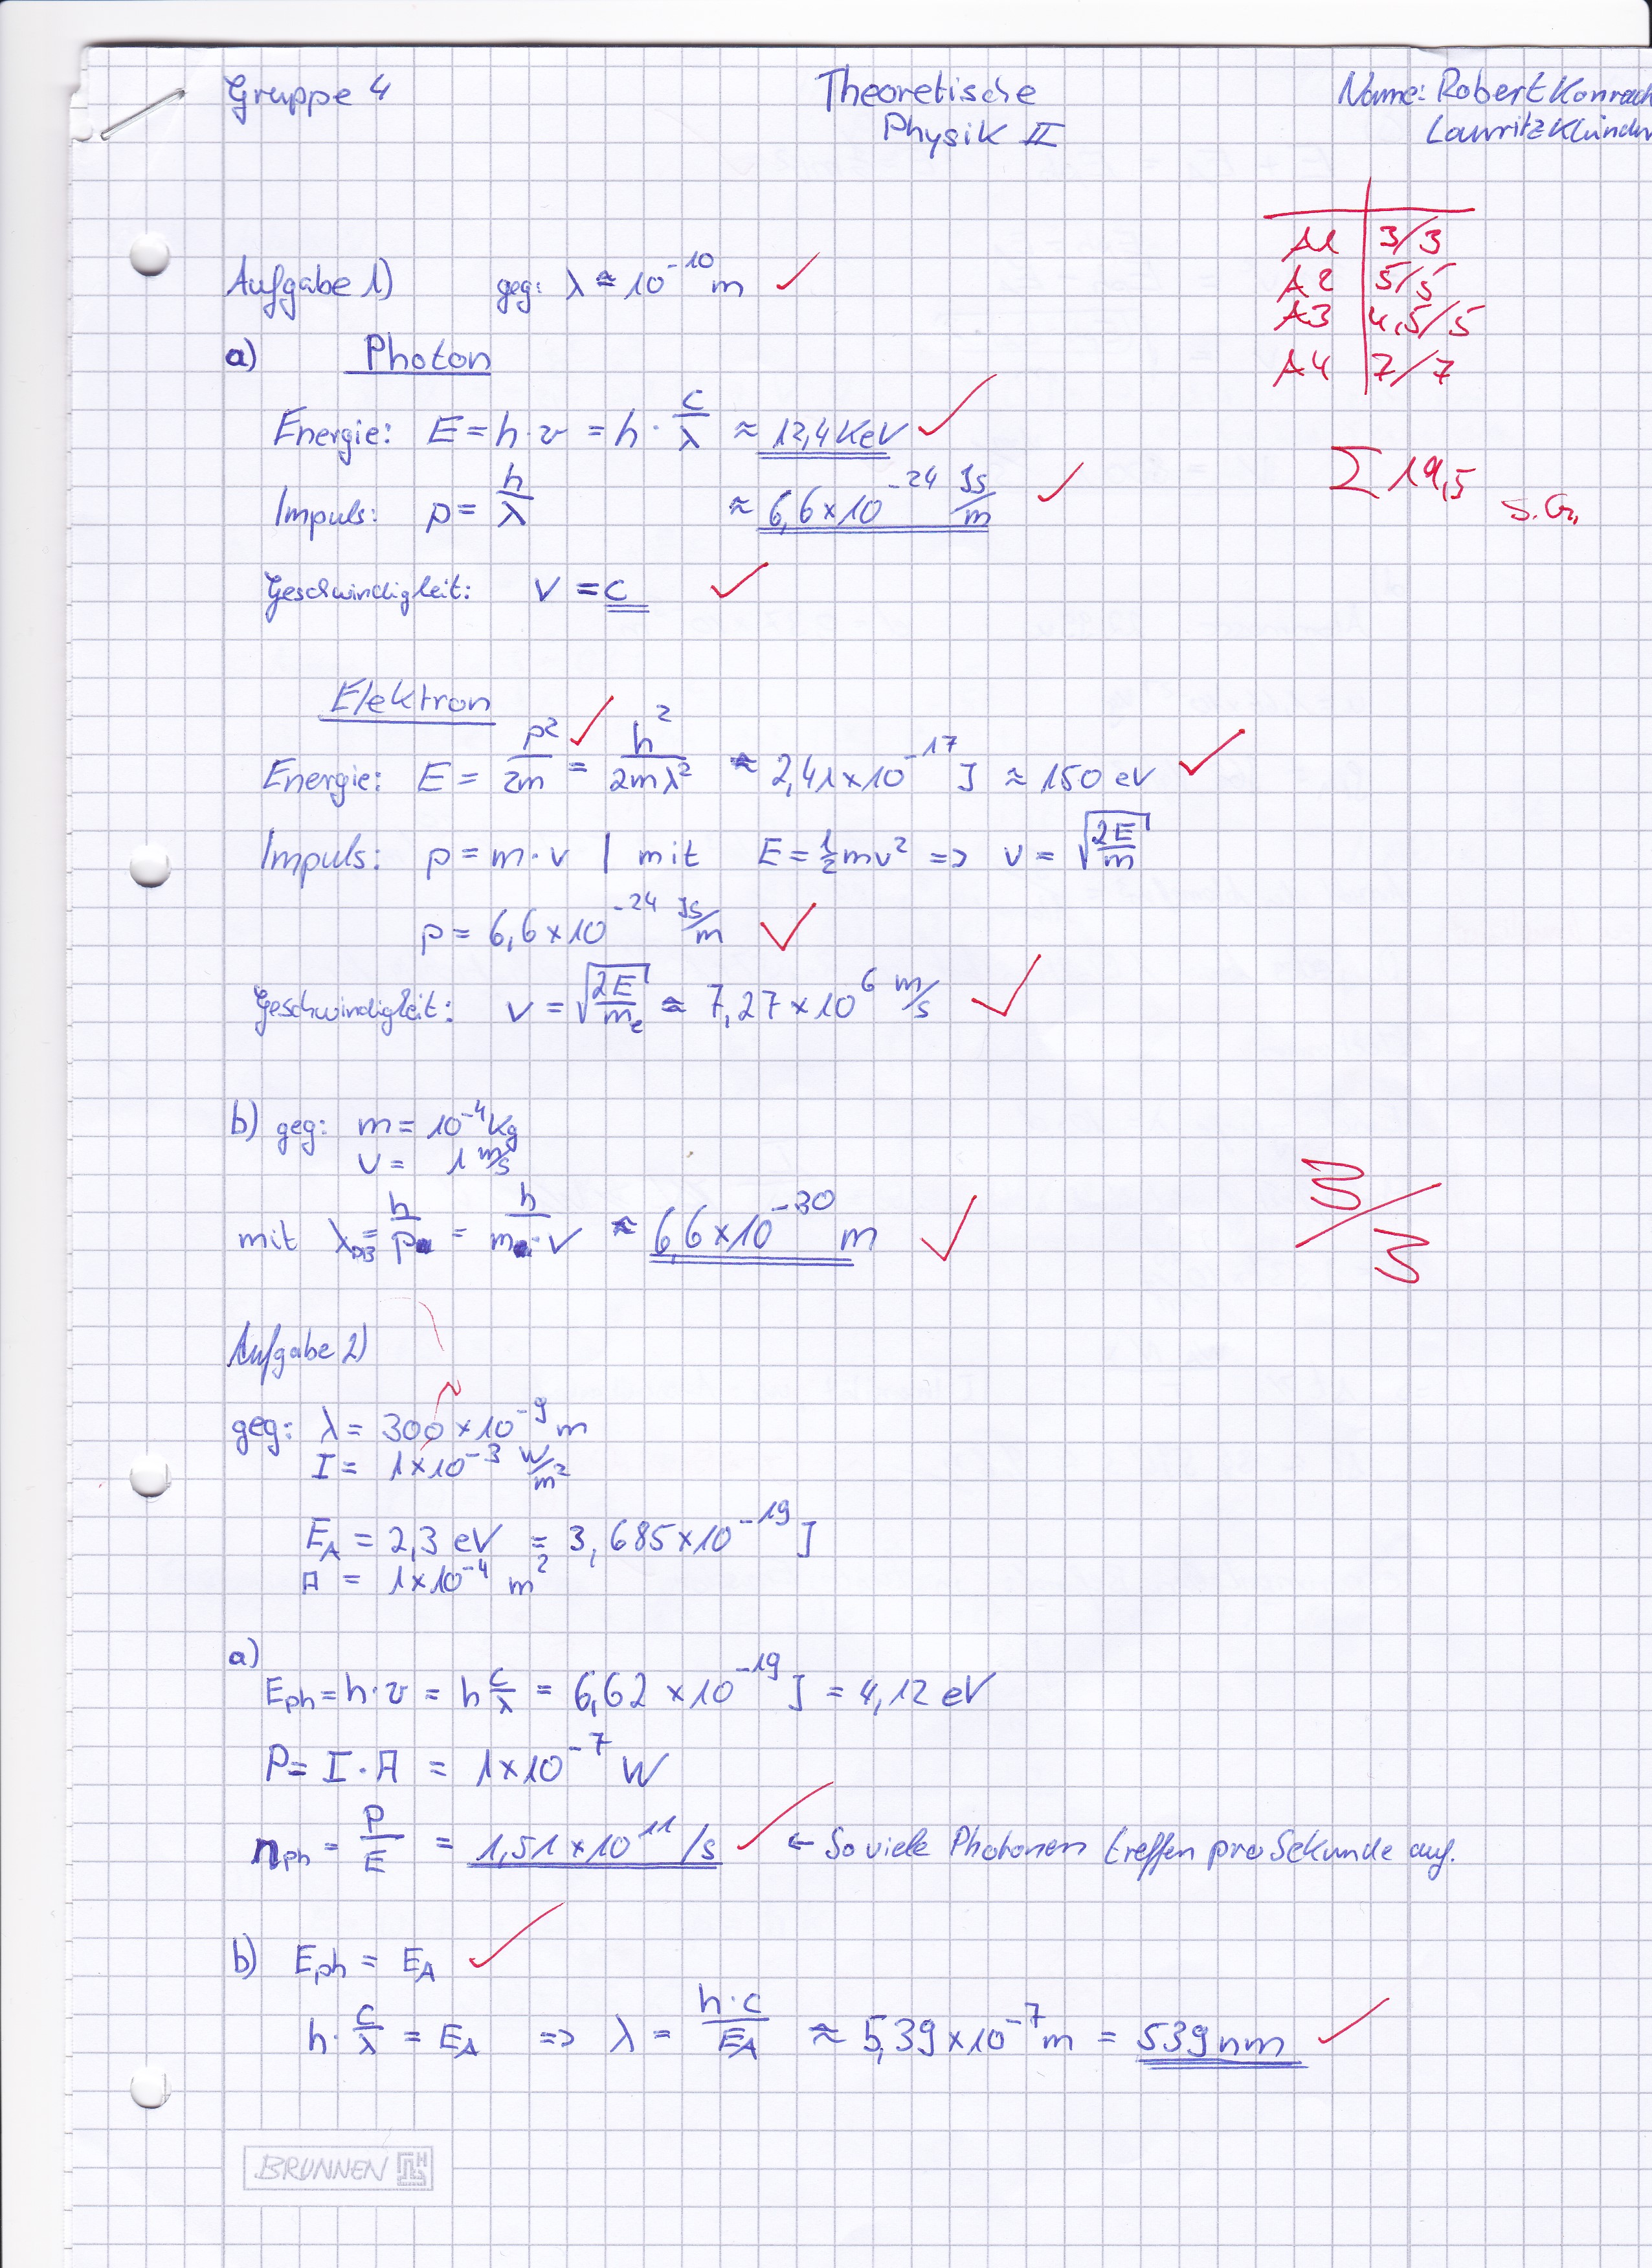 Gruppe 4
Theoretische
Physik II
Name: Robert Konrad
Lauritz
A1 3/3
A2 5/5
A3 4,5/5
A4 7/7
Σ 19,5
S. Gr.
Aufgabe 1) geg: λ ≈ 10^-10 m ✓
a) Photon
Energie: E = h·ν = h · c/λ ≈ 12,4 KeV ✓
Impuls: p = h/λ ≈ 6,6 × 10^-24 Js/m ✓
Geschwindigleit: v = c ✓
Elektron
Energie: E = p²/2m ✓ = h²/2mλ² ≈ 2,41 × 10^-17 J ≈ 150 eV ✓
Impuls: p = m·v | mit E = 1/2 mv² => v = √(2E/m)
p = 6,6 × 10^-24 Js/m ✓
Geschwindigleit: v = √(2E/m_e) ≈ 7,27 × 10^6 m/s ✓
b) geg: m = 10^-4 Kg
v = 1 m/s
mit λ_DB = h/p = h/m·v ≈ 6,6 × 10^-30 m ✓
3/3
Aufgabe 2)
geg: λ = 300 × 10^-9 m
I = 1 × 10^-3 W/m²
E_A = 2,3 eV = 3,685 × 10^-19 J
A = 1 × 10^-4 m²
a)
E_ph = h·ν = h c/λ = 6,62 × 10^-19 J = 4,12 eV
P = I · A = 1 × 10^-7 W
n_ph = P/E = 1,51 × 10^11 /s ✓ ← So viele Photonen treffen pro Sekunde auf.
b) E_ph = E_A ✓
h · c/λ = E_A => λ = h·c/E_A ≈ 5,39 × 10^-7 m = 539 nm ✓
BRUNNEN